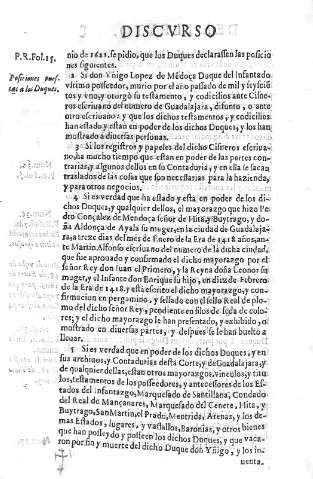 DISCVRSO
P.R.Fol.15.
Posiciones puestas a los Duques.
nio de 1621. se pidio, que los Duques declarassen las posiciones siguientes.
2 Si don Yñigo Lopez de Mẽdoça Duque del Infantado
vltimo possedor, murio por el año passado de mil y seyscientos
y vno, y otorgò su testamento, y codicilios ante Cisneros
escriuano del numero de Guadalajara, difunto, o ante
otro escriuano: y que los dichos testamentos, y codicilios
han estado y estan en poder de los dichos Duques, y los han
mostrado a diuersas personas.
3 Si los registros y papeles del dicho Cisneros escriuano,
ha mucho tiempo que estan en poder de las partes contrarias,
y algunos dellos en su Contaduria, y en ella se sacan
traslados de las cosas que son necessarias para la hazienda,
y para otros negocios.
4 Si es verdad que ha estado y està en poder de los dichos
Duques, y qualquier dellos, el mayorazgo que hizo Pedro
Gonçalez de Mendoça señor de Hita, y Buytrago, y doña
Aldonça de Ayala su muger, en la ciudad de Guadalajara,
a treze dias del mes de Enero de la Era de 1418 años, ante
Martin Alfonso escriuano del numero de la dicha ciudad,
que fue aprouado y confirmado el dicho mayorazgo por el
señor Rey don Iuan el Primero, y la Reyna doña Leonor su
muger, y el Infante don Enrique su hijo, en diez de Febrero
de la Era de 1418. y està escrito el dicho mayorazgo, y confirmacion
en pergamino, y sellado con el sello Real de plomo
del dicho señor Rey, pendiente en filos de seda de colores;
y el dicho mayorazgo le han presentado, y exhibido, o
mostrado en diuersas partes, y despues se le han buelto a
lleuar.
5 Si es verdad que en poder de los dichos Duques, y en
sus archiuos, y Contadurias desta Corte, y de Guadalajara, y
de qualquier dellas, estan otros mayorazgos, vinculos, y titulos,
testamentos de los possedores, y antecessores de los Estados
del Infantazgo, Marquesado de Santillana, Condado
del Real de Mançanares, Marquesado del Cenete, Hita, y
Buytrago, San Martin, el Prado, Mentrida, Arenas, y los demas
Estados, lugares, y vassallos, Baronias, y otros bienes
que han posseydo y posseen los dichos Duques, y que vacaron
por fin y muerte del dicho Duque don Yñigo, y los in-
uenta-